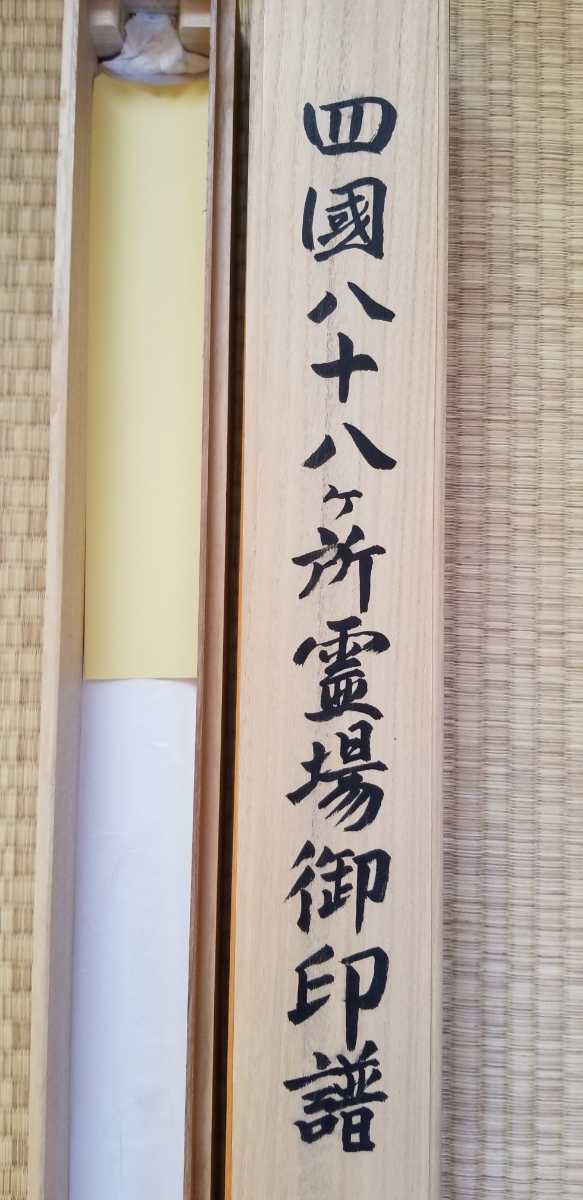 四國八十八ヶ所霊場御印譜